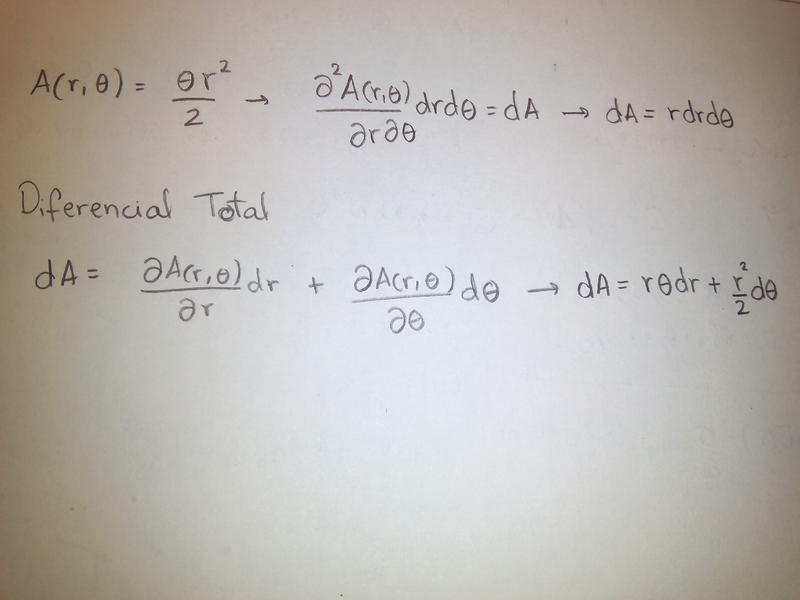 A(r,θ) = θr²/2 → ∂²A(r,θ)/∂r∂θ drdθ = dA → dA = rdrdθ
Diferencial Total
dA = ∂A(r,θ)/∂r dr + ∂A(r,θ)/∂θ dθ → dA = rθdr + r²/2 dθ